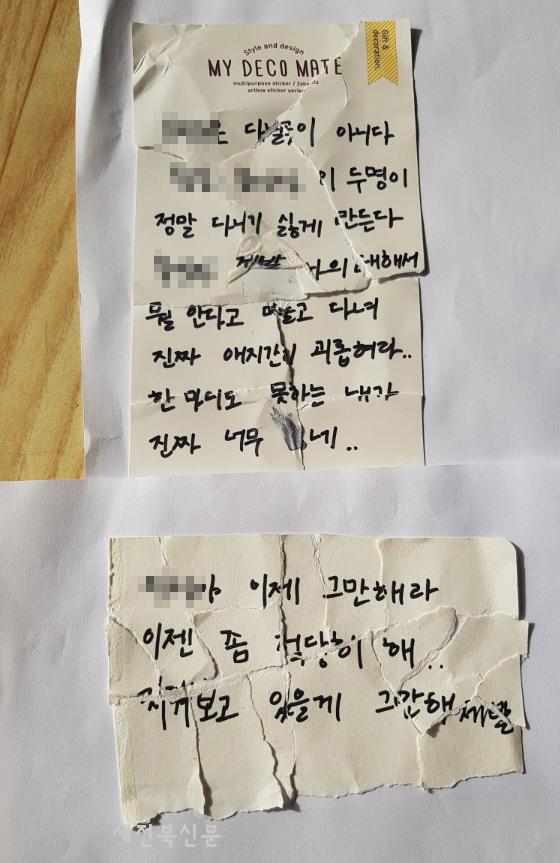 Style and design
MY DECO MATE
multipurpose sticker /
artbox sticker series
Gift &
decoration
다닐곳이 아니다
이 두명이
정말 다니기 싫게 만든다
제발 나의 대해서
뭘 안다고 떠들고 다녀
진짜 애지간히 괴롭혀라..
한 마디도 못하는 내가
진짜 너무 네..
야 이제 그만해라
이젠 좀 적당히 해..
지켜보고 있을게 그만해 제발
새전북신문